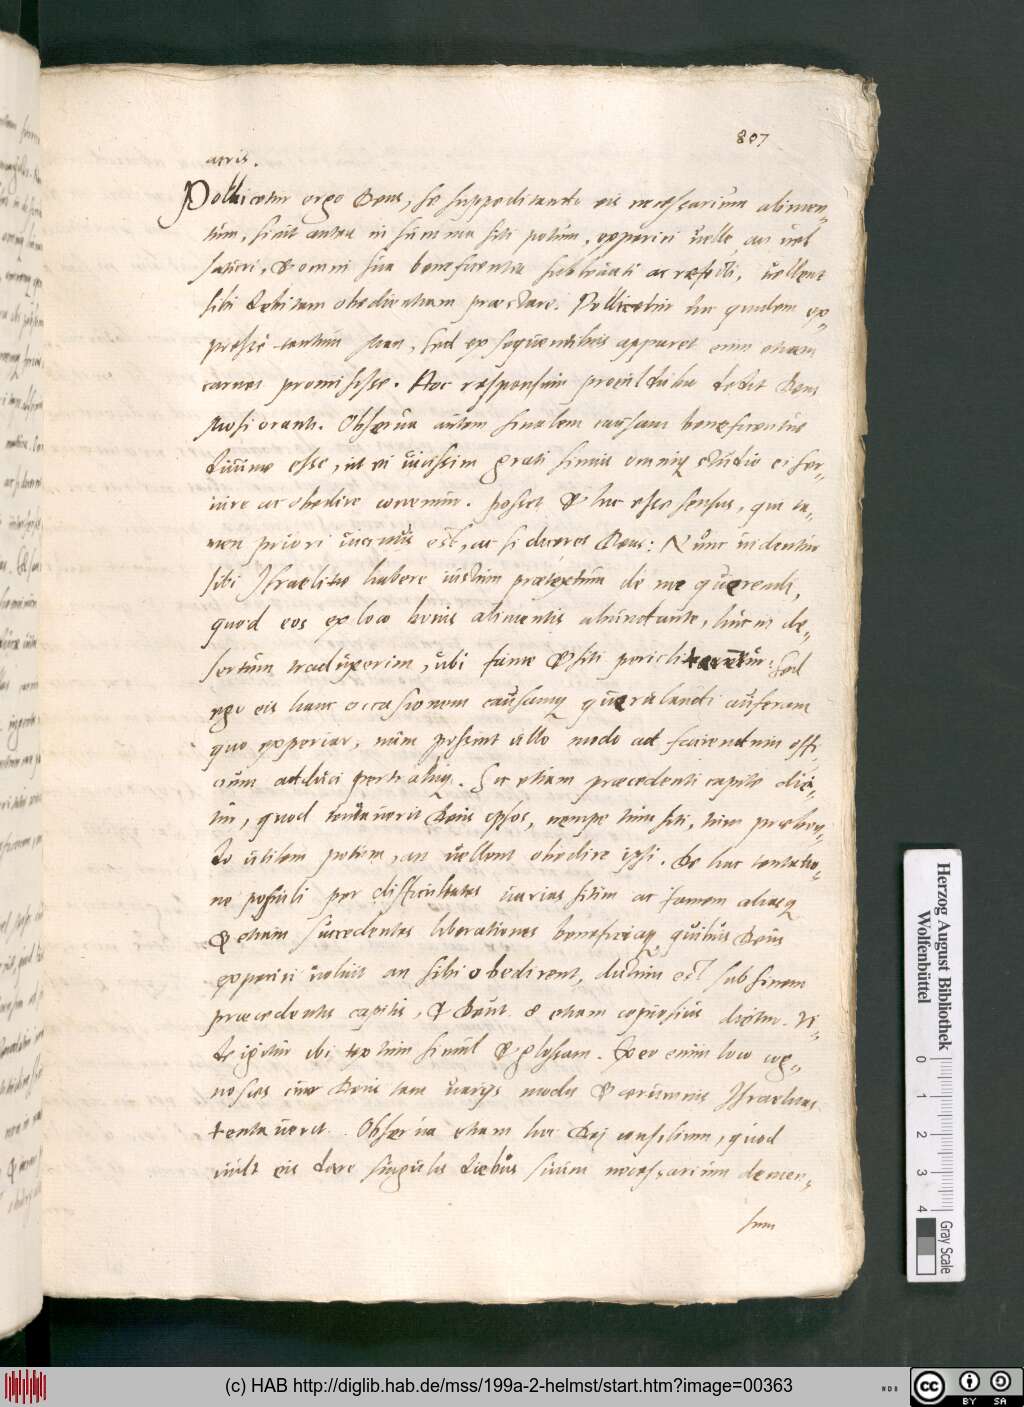 807
aeris.
Pollicetur ergo Deus, se suppeditando eis necessarium alimen-
tum, sicut antea in summa siti potum, experiri velle an vel
saturi, & omni sua beneficentia sublevati ac refecti, vellent
sibi debitam obedientiam praestare. Pollicetur hic quidem ex-
presse tantum man, sed ex sequentibus apparet eum etiam
carnes promisisse. Hoc responsum procul dubio dedit Deus
Mosi oranti. Observa autem finalem causam beneficentiae
divinae esse, ut ei vicissim grati simus omniq studio ei ser-
vire ac obedire conemur. posset & hic esse sensus, qui ta-
men priori vicinus est, ac si diceret Deus: Nunc videntur
sibi Israelitae habere iustum praetextum de me querendi,
quod eos ex loco bonis alimentis abundante, huc in de-
sertum traduxerim, ubi fame & siti periclitarentur: sed
ego eis hanc occasionem causamq querulandi auferam
quo experiar, num possint ullo modo ad faciendum offi-
cium adduci pertrahiq. Sic etiam praecedenti capite dici-
tur, quod tentaverit Deus ipsos, nempe tum siti, tum praeben-
do utilem potum, an vellent obedire ipsi. De hac tentatio-
ne populi per difficultates varias sitim ac famem aliasq
& etiam succedentes liberationes beneficiaq, quibus Deus
experiri voluit an sibi obedirent, dictum est sub finem
praecedentis capitis, & Deut. 8 etiam copiosius dicitur. Vi-
de igitur ibi textum simul & glossam. Ex eo enim loco cog-
nosces cur Deus tam varijs modis & aerumnis Israelitas
tentaverit. Observa etiam hic Dej consilium, quod
vult eis dare singulis diebus suum necessarium demen-
sum
Herzog August Bibliothek
Wolfenbüttel
0 1 2 3 4
Gray Scale
(c) HAB http://diglib.hab.de/mss/199a-2-helmst/start.htm?image=00363
WDB
CC BY SA